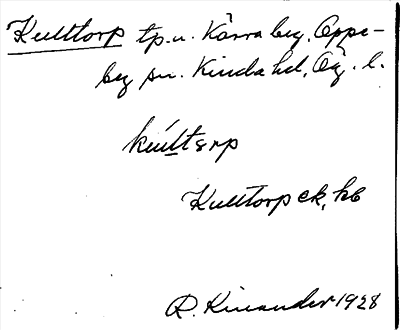 Kulltorp tp. u. Kärraby, Oppe-
by sn. Kinda hd, Ög. l.
kúlltɛrp
Kulltorp ek, kb
R. Kinander 1928